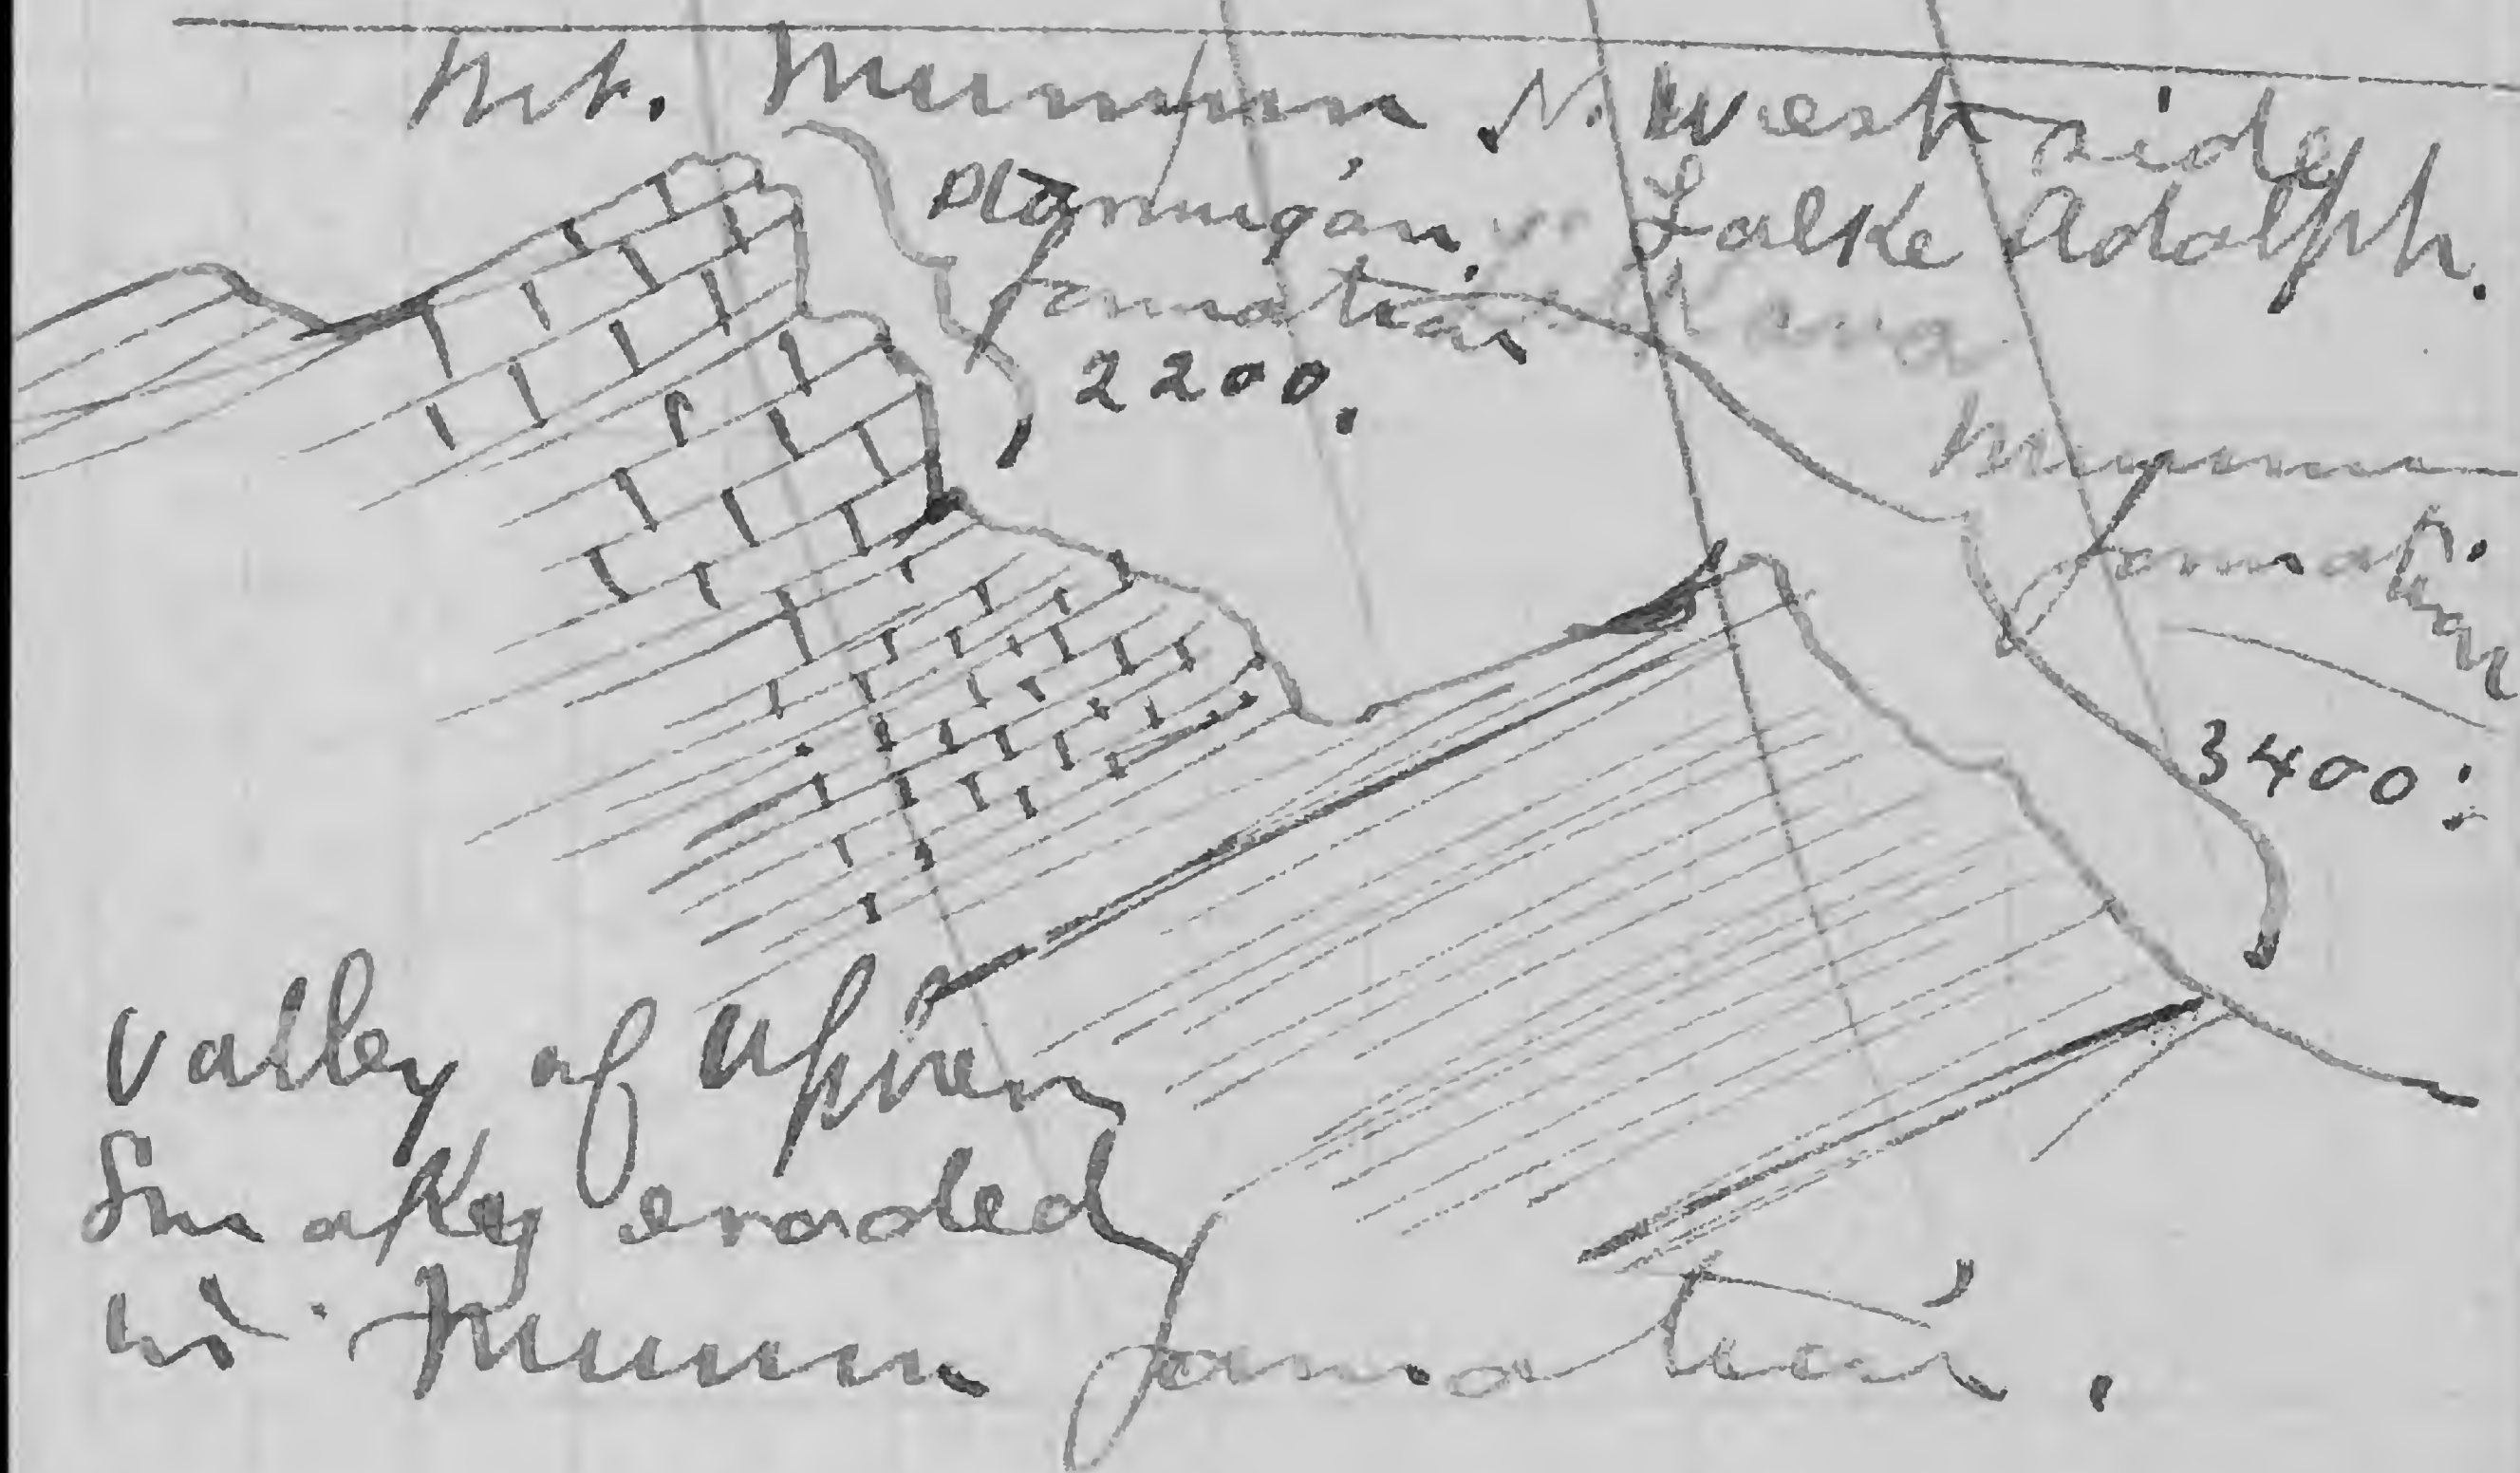 Mt. Mumm N. West side
Ptarmigan. Lake Adolph.
formation
2200.
Mumm
format.
3400'
Valley of Upper
Smoky eroded
in Mumm formation.